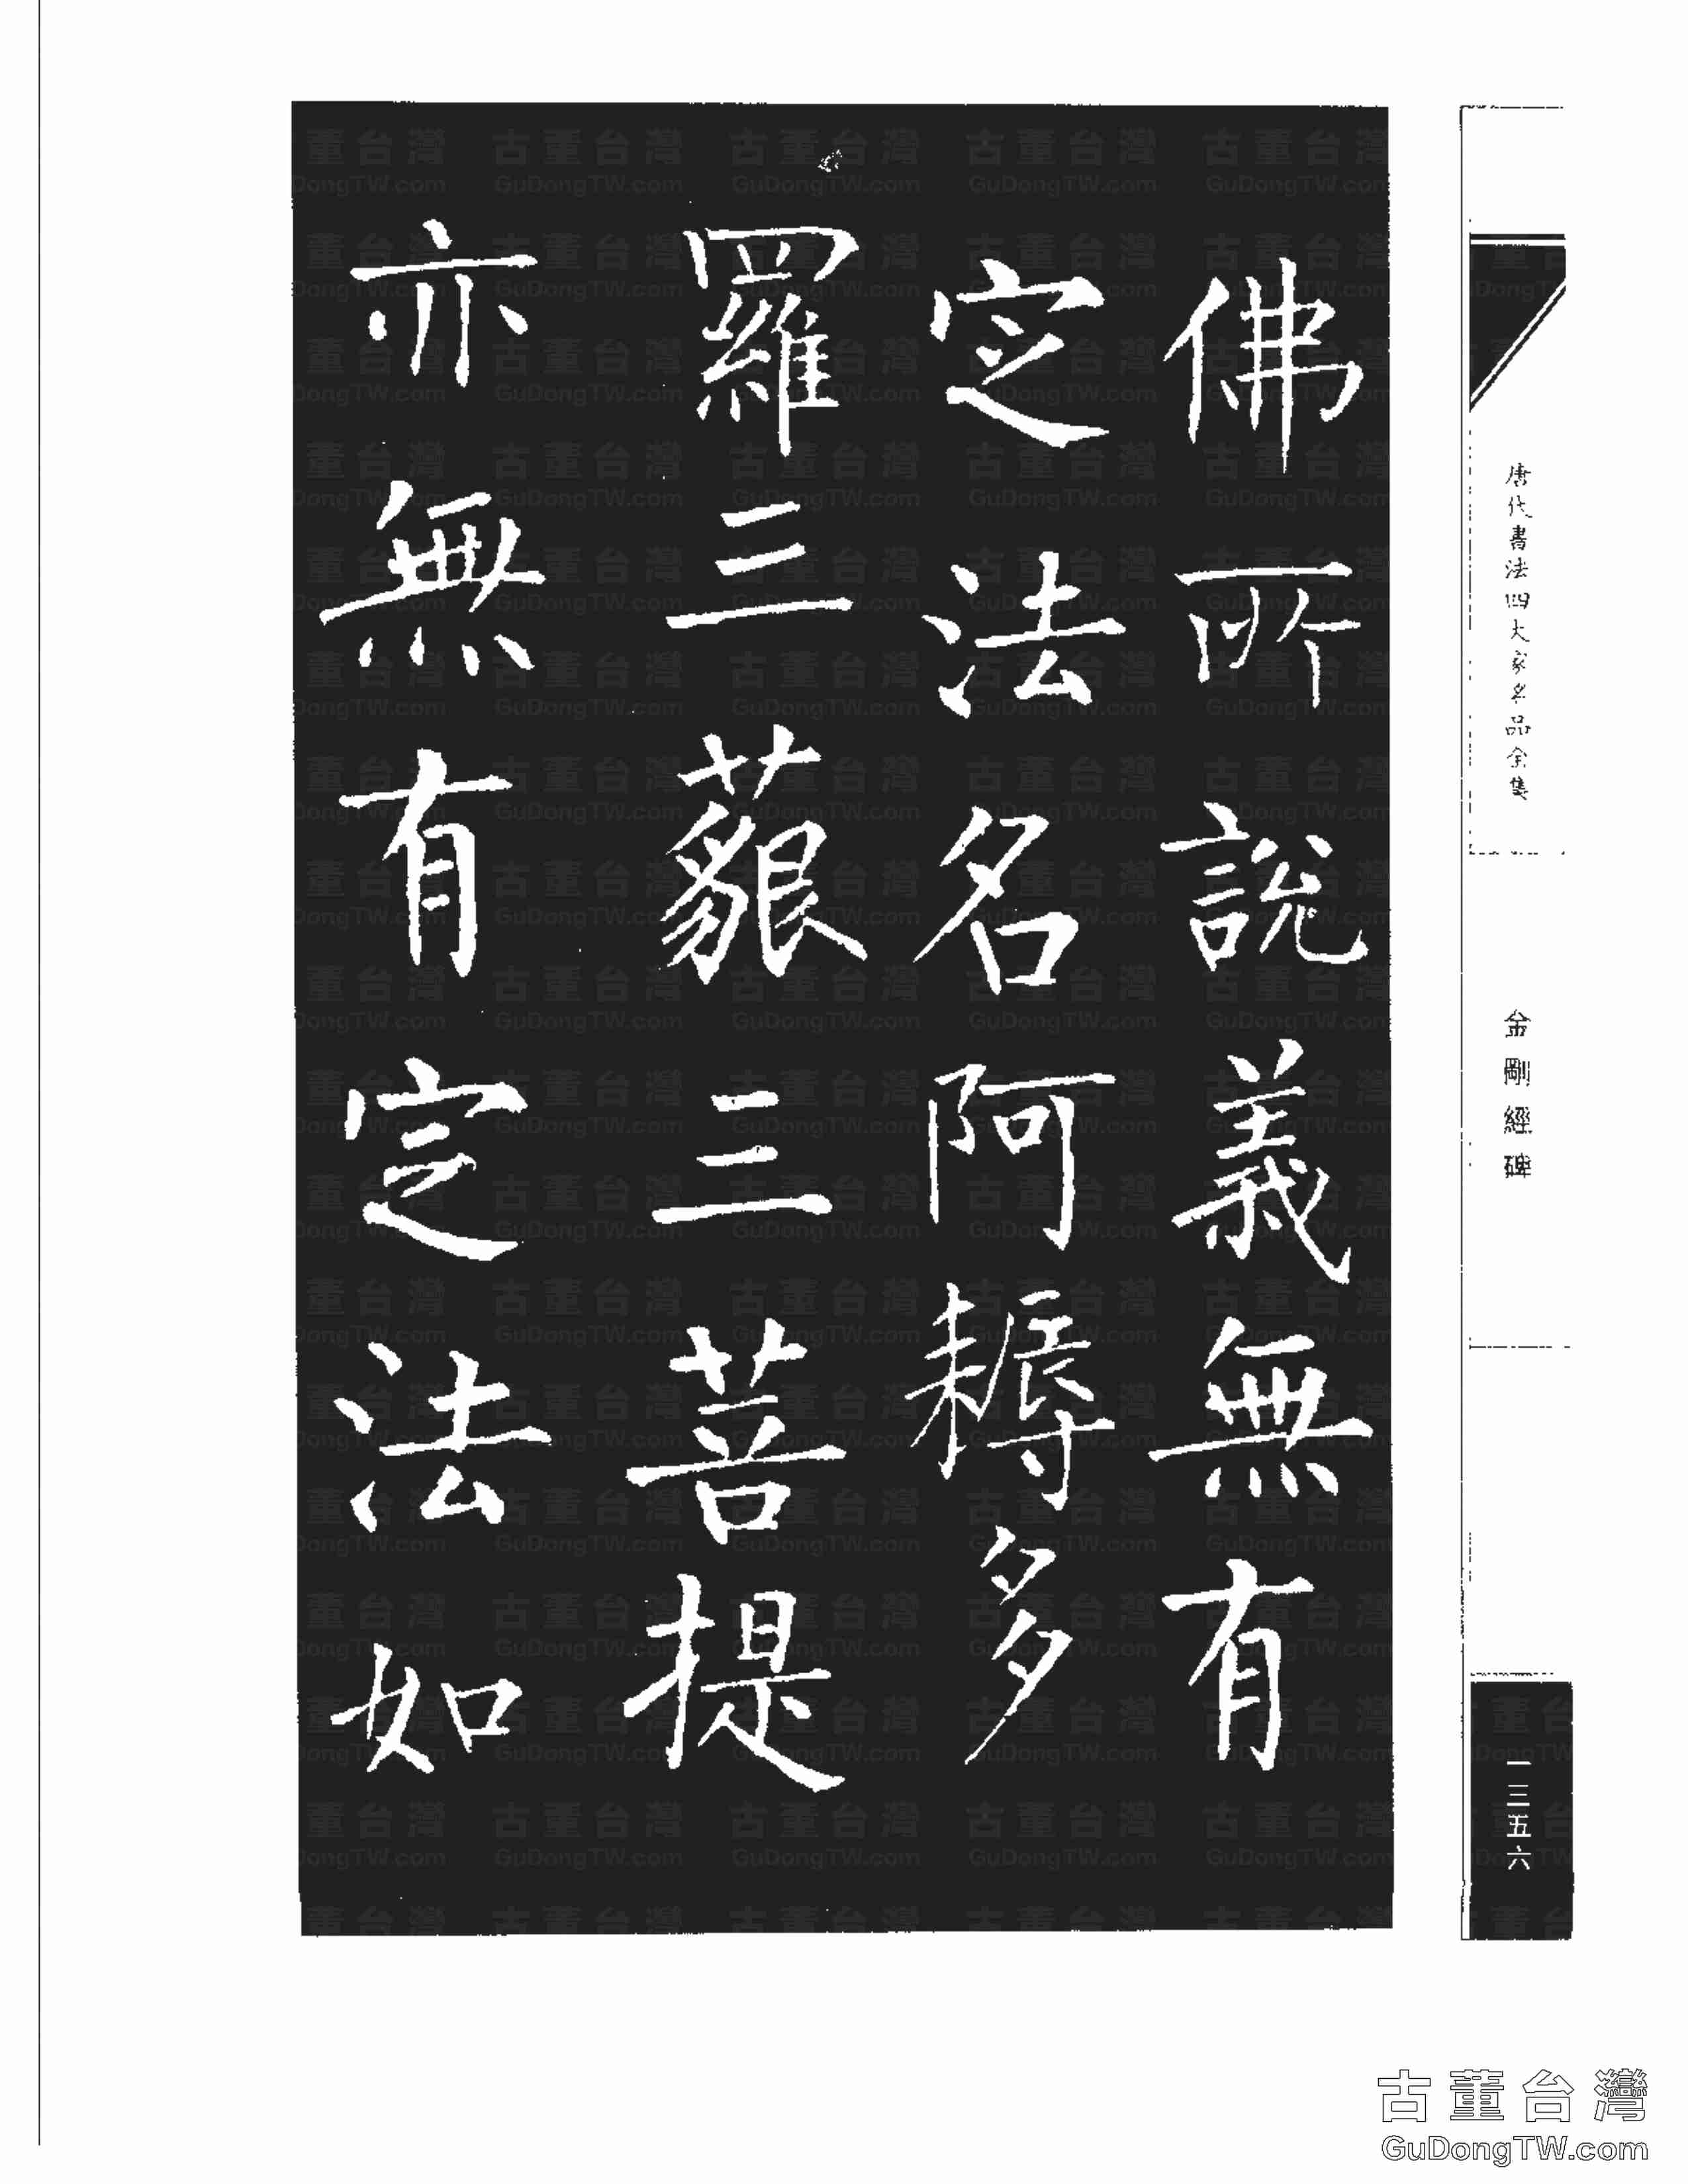 佛所說義無有
定法名阿耨多
羅三藐三菩提
亦無有定法如
唐代書法四大家名品全集
金剛經碑
一三五六
古董台灣
GuDongTW.com